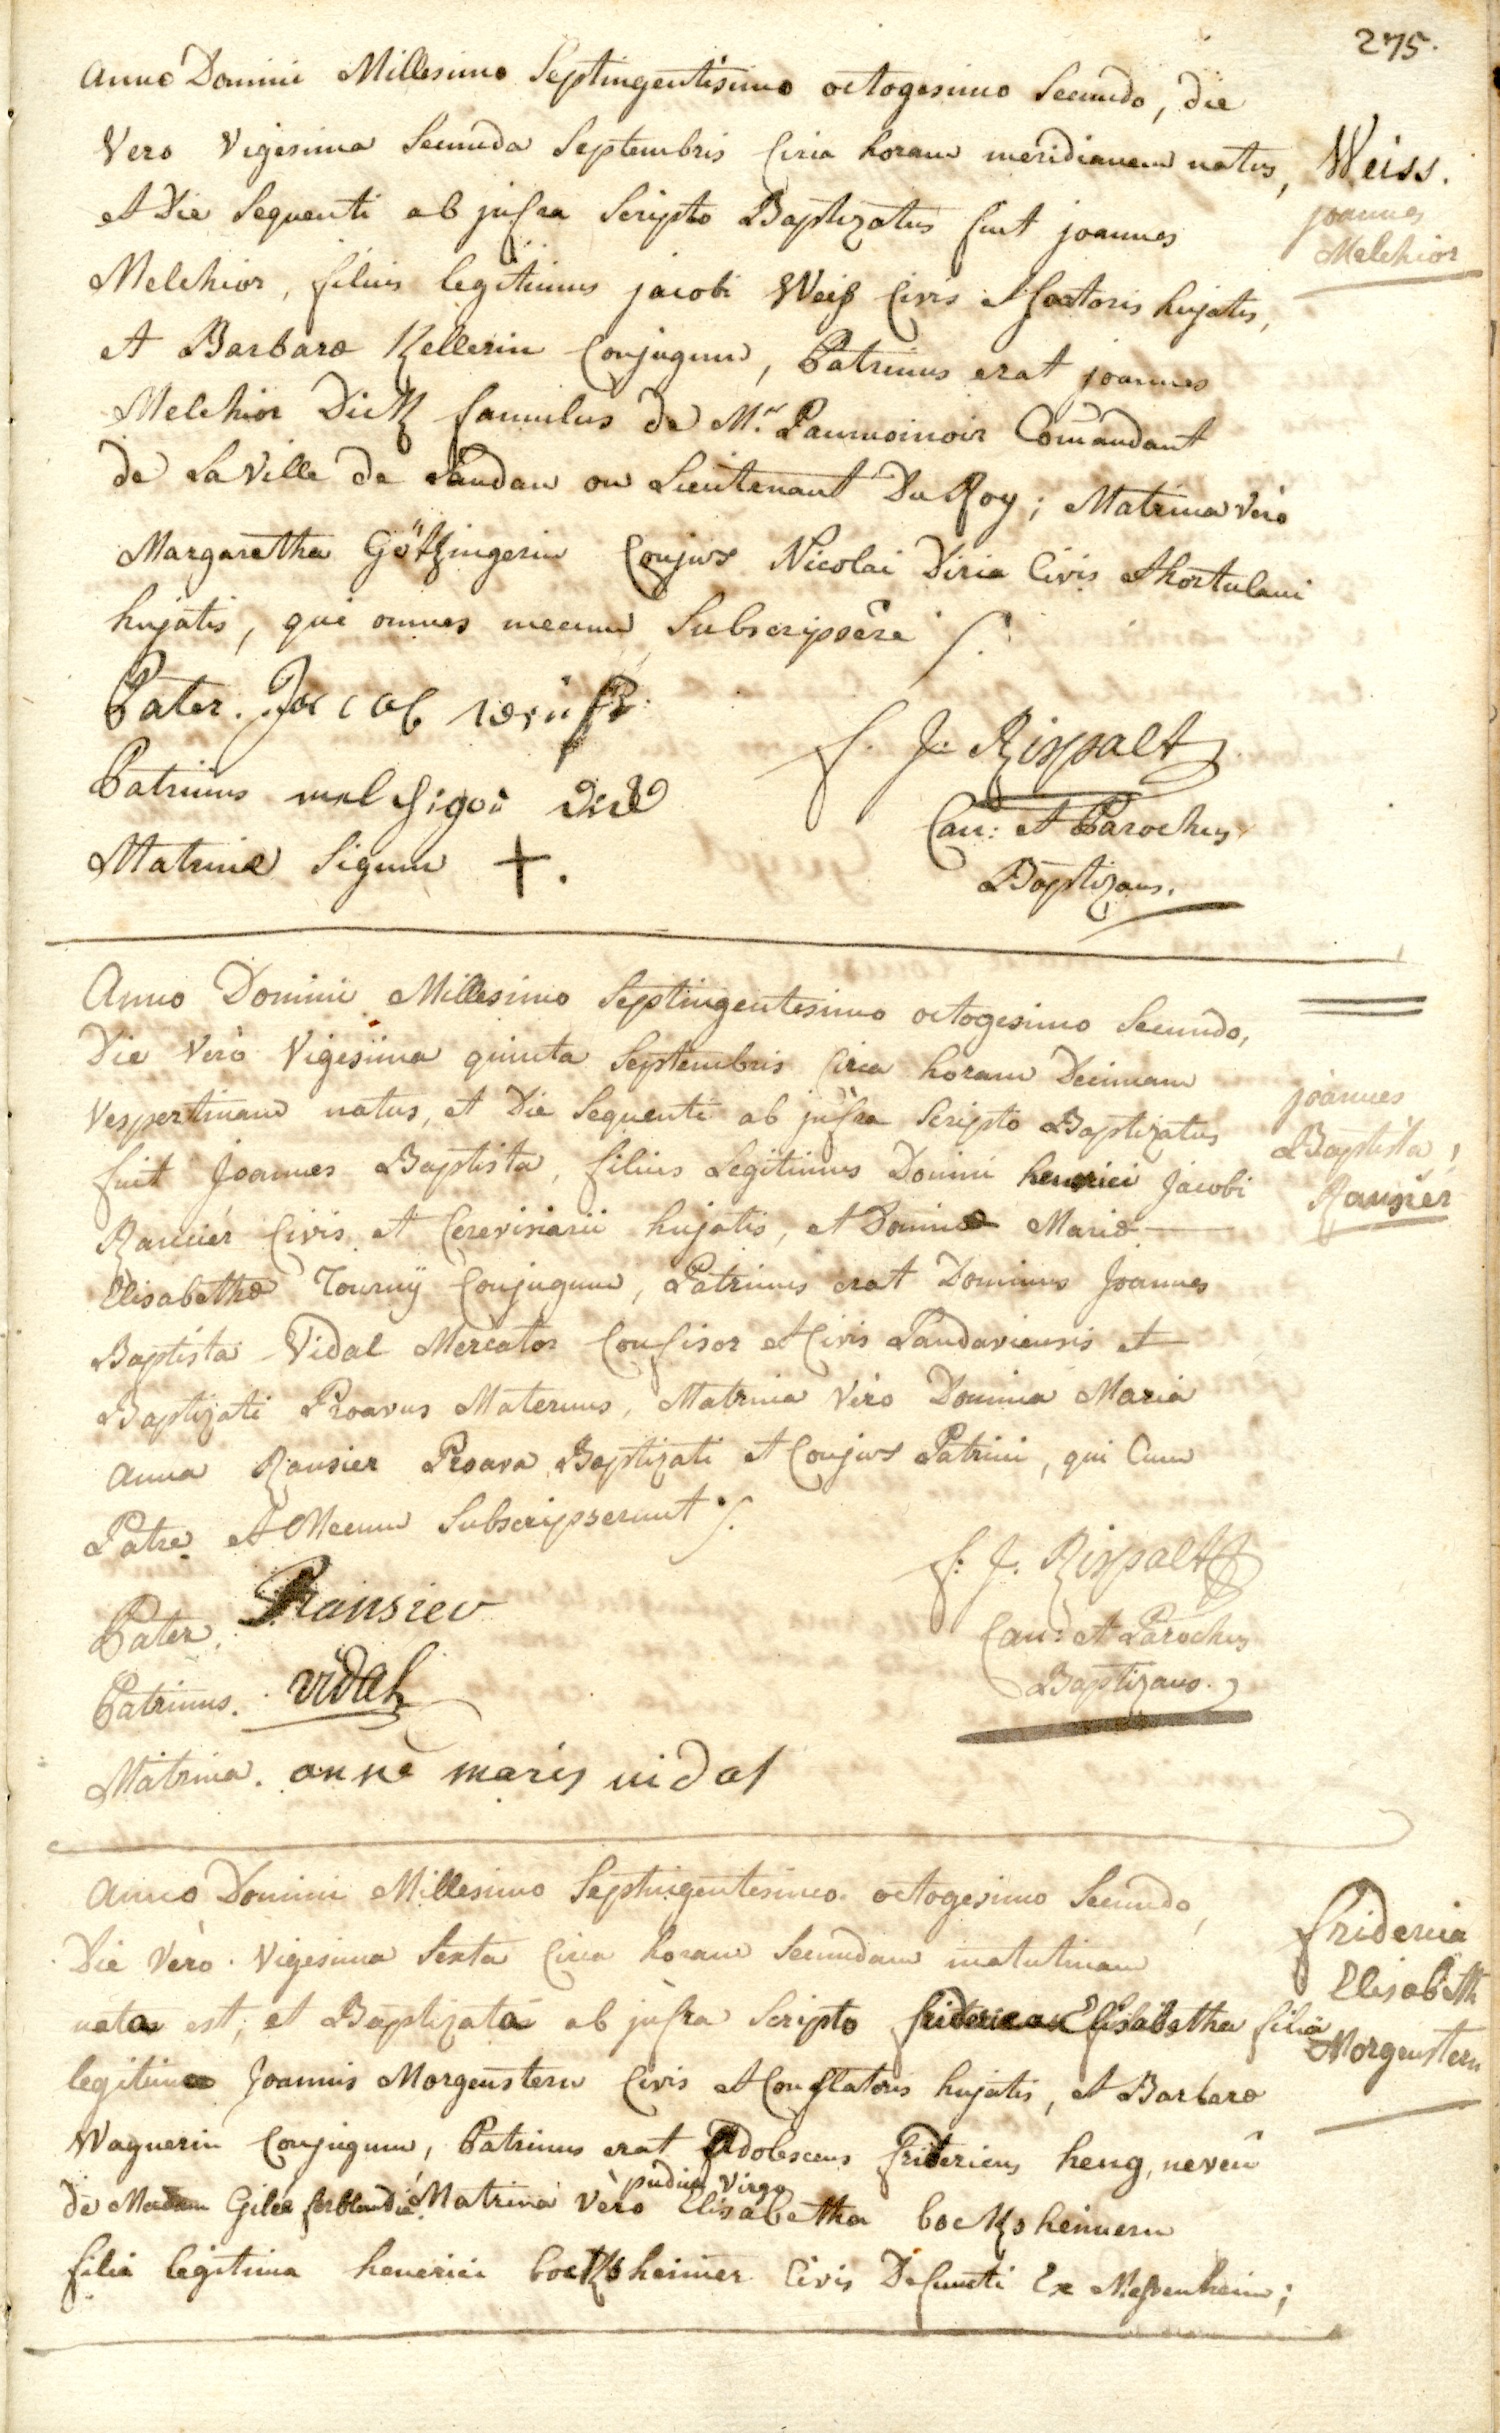 275.
Anno Domini Millesimo Septingentesimo octogesimo Secundo, die
Vero Vigesima Secunda Septembris Circa horam meridianam natus,
Weiss.
et Die Sequenti ab jnfra Scripto Baptizatus fuit joannes
joannes
Melchior
Melchior, filius legitimus jacobi Weiß Civis et sartoris hujatis,
et Barbaræ Kellerin Conjugum, Patrinus erat joannes
Melchior Dietz famulus de M.r Paumoinoir Com̄andant
de La Ville de Landau ou Lieutenant Du Roy; Matrina verò
Margaretha Götzingerin Conjux Nicolai Diria Civis et hortulani
hujatis, qui omnes mecum Subscripsêre ./.
Pater. Jacob weiß
f. J. Rispalt
Patrinus melchior
Can: et Parochus
Matrinæ Signum +.
Baptizans.
Anno Domini Millesimo Septingentesimo octogesimo Secundo,
Die Verò Vigesima quinta Septembris Circa horam Decimam
Vespertinam natus, et Die Sequenti ab jnfra Scripto Baptizatus
joannes
Baptista,
Ransier
fuit Joannes Baptista, filius Legitimus Domini henrici Jacobi
Ransier Civis et Cerevisiarii hujatis, et Dominæ Mariæ
Elisabethæ Tourny Conjugum, Patrinus erat Dominus Joannes
Baptista Vidal Mercator Confisor et Civis Landaviensis et
Baptizati Proavus Maternus, Matrina Vèro Domina Maria
Anna Ransier Proava Baptizati et Conjux Patrini, qui Cum
Patre et Mecum Subscripserunt ./.
f. J. Rispalt
Pater. Ransier
Can: et Parochus
Patrinus. vidal
Baptizans.
Matrina. anne marie vidal
Anno Domini Millesimo Septingentesimo octogesimo Secundo,
Die Vèro Vigesima Sexta Circa horam Secundam matutinam
friderica
Elisabeth
Morgenstern
nata est, et Baptizata ab jnfra Scripto friderica Elisabetha filia
legitima Joannis Morgenstern Civis et Conflatoris hujatis, et Barbaræ
Wagnerin Conjugum, Patrinus erat Adolescens fridericus heng, neveu
pudica Virgo
de Madam Gilée Matrina Vèro Elisabetha bockzheimern
filia legitima henrici bockzheimer Civis Defuncti Ex Meßenheim;